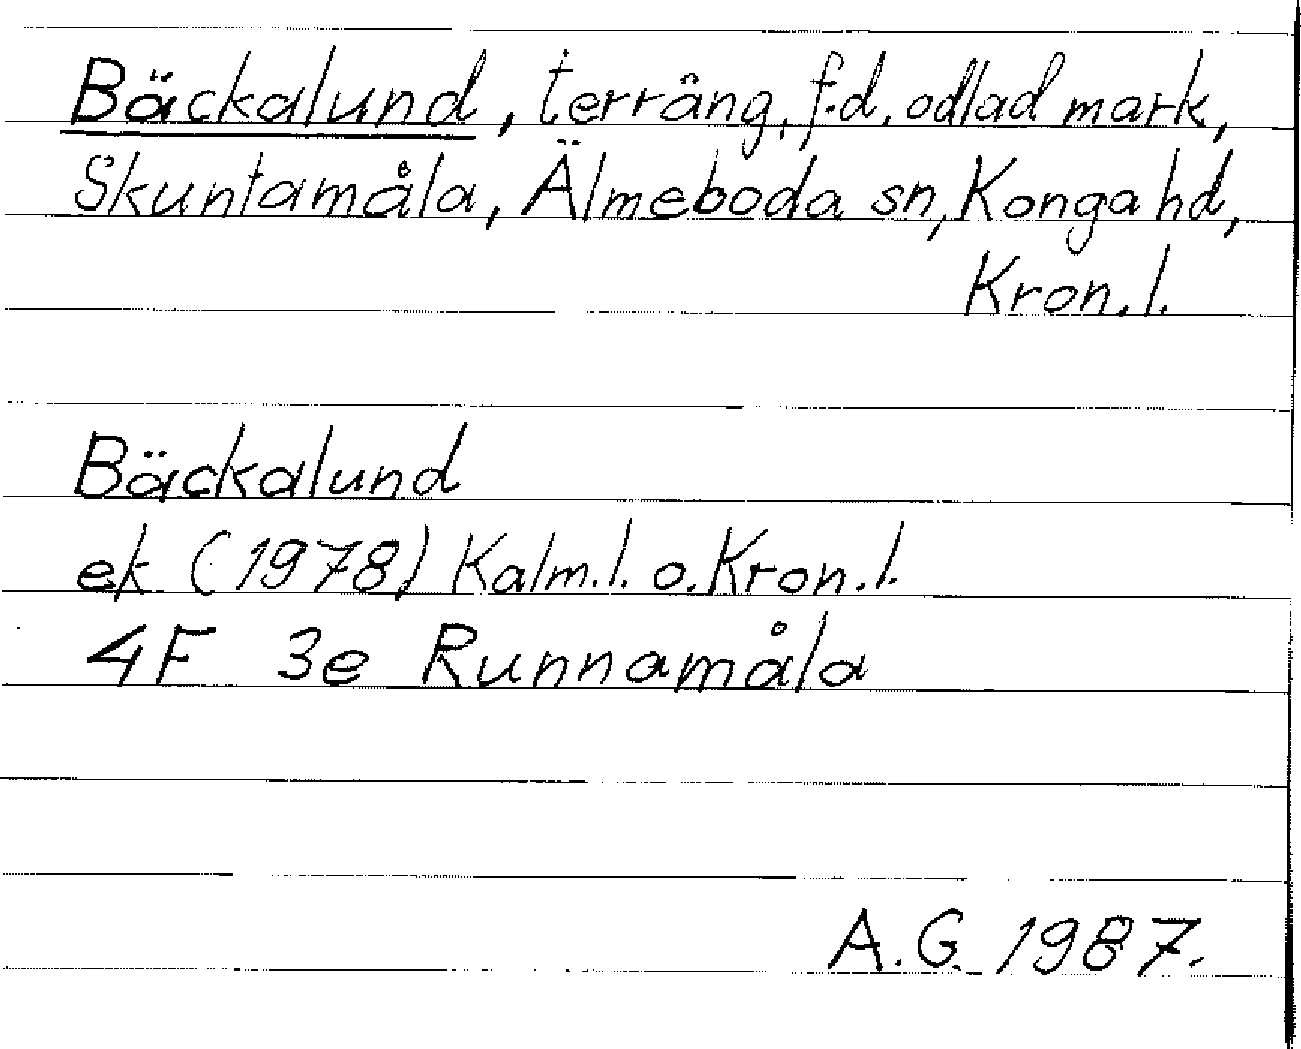 Bäckalund, terräng, f.d. odlad mark,
Skuntamåla, Älmeboda sn, Konga hd,
Kron.l.
Bäckalund
ek (1978) Kalm.l. o. Kron.l.
4F 3e Runnamåla
A.G. 1987.